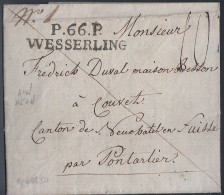 P.66.P. Monsieur
WESSERLING
Fredrick Duval maison Besson
à Couvet
Canton de Neuchatel en Suisse
par Pontarlier